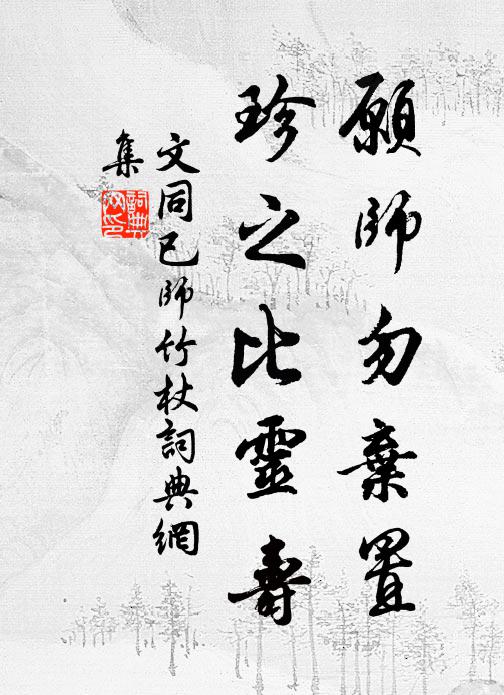 願師勿棄置
珍之比靈壽
文同已師竹杖詞典網
集
詞典网印